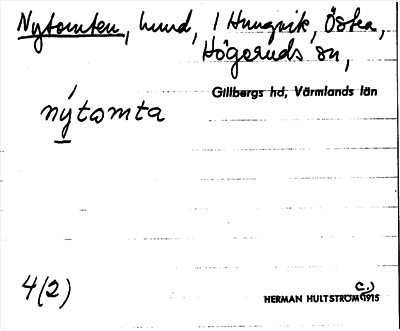 Nytomten, hmd, 1 Hungvik, Östra,
Högeruds sn,
Gillbergs hd, Värmlands län
nýtomta
4(2)
HERMAN HULTSTRÖM (C.) 1915